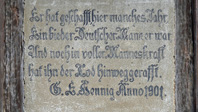 Er hat geschafft hier manches Jahr.
Ein bieder Deutscher Mann er war
Und noch in voller Manneskraft
hat ihn der Tod hinweggerafft.
G. H. Hennig Anno 1901.